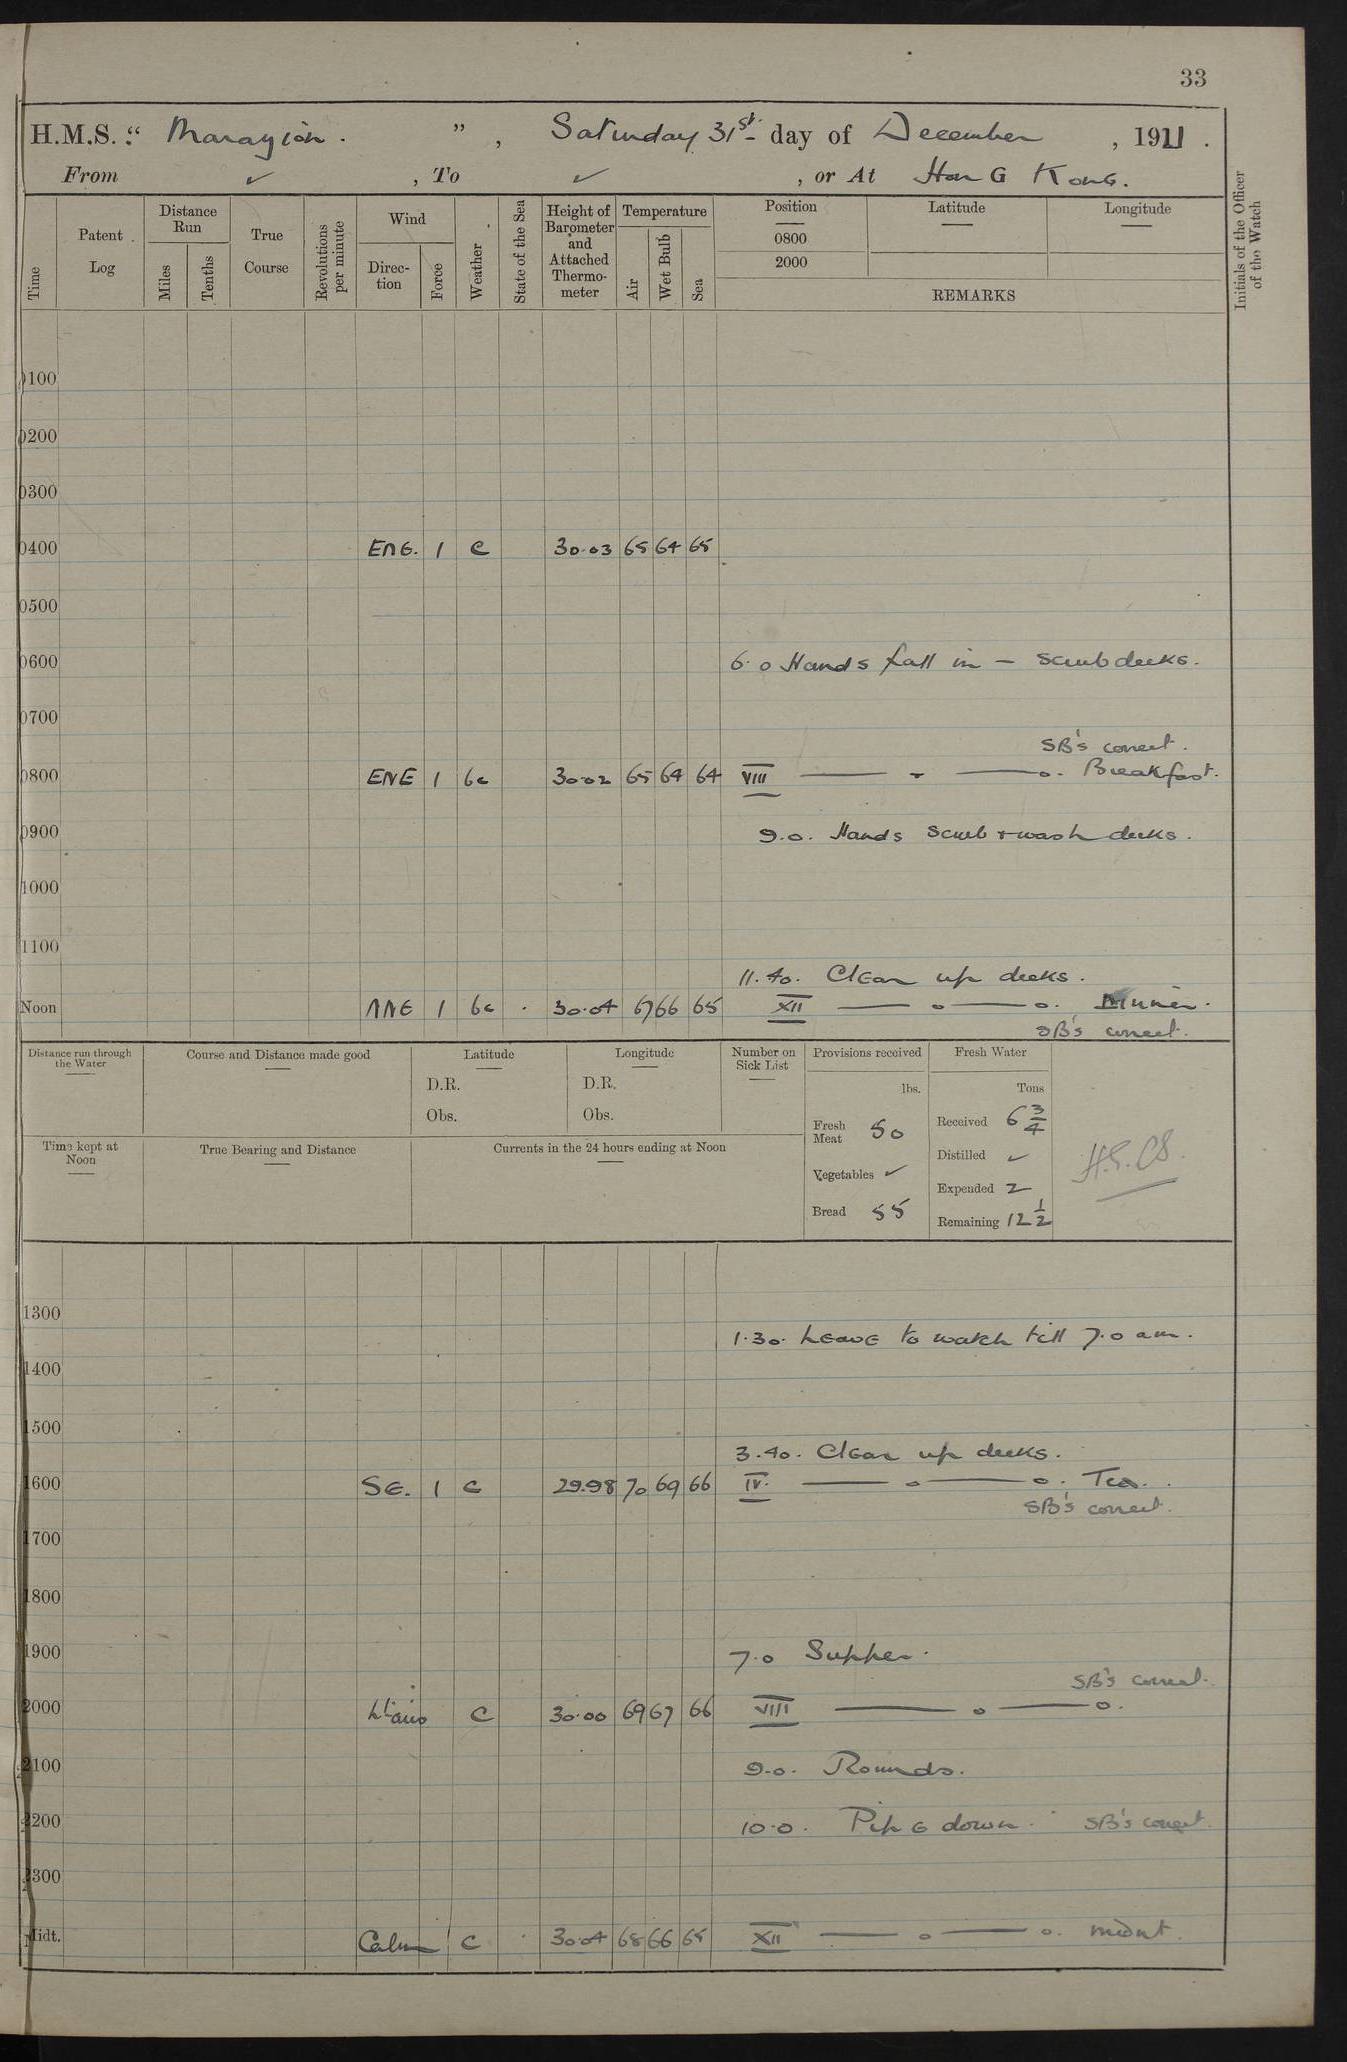 33
H.M.S. " Marazion. ", Saturday 31st day of December, 1921.
From ✓, To ✓, or At Hong Kong.
Time Patent Log Distance Run Miles Tenths True Course Revolutions per minute Wind Direction Force Weather State of the Sea Height of Barometer and Attached Thermometer Temperature Air Wet Bulb Sea Position 0800 2000 Latitude Longitude REMARKS Initials of the Officer of the Watch
0100
0200
0300
0400 ENE. 1 c 30.03 65 64 65
0500
0600 6.0 Hands fall in - scrub decks.
0700
SB's correct.
0800 ENE 1 bc 30.02 65 64 64 VIII —— - ——o. Breakfast.
0900 9.0. Hands scrub & wash decks.
1000
1100
11.40. Clear up decks.
Noon NNE 1 bc 30.04 67 66 65 XII —— o ——o. Dinner.
SB's correct.
Distance run through the Water Course and Distance made good Latitude Longitude Number on Sick List Provisions received Fresh Water
D.R. D.R. lbs. Tons
Obs. Obs. Fresh Meat 50 Received 6 3/4
Time kept at Noon True Bearing and Distance Currents in the 24 hours ending at Noon Vegetables ✓ Distilled ✓
Expended 2
Bread 55 Remaining 12 1/2
1300
1.30. Leave to watch till 7.0 am.
1400
1500
3.40. Clear up decks.
1600 SE. 1 c 29.98 70 69 66 IV. —— o ——o. Tea.
SB's correct.
1700
1800
1900 7.0 Supper.
SB's correct.
2000 Lt airs c 30.00 69 67 66 VIII —— o ——o.
2100 9.0. Rounds.
2200 10.0. Pipe down. SB's correct.
2300
Midt. Calm c 30.04 68 66 65 XII —— o ——o. midnt.